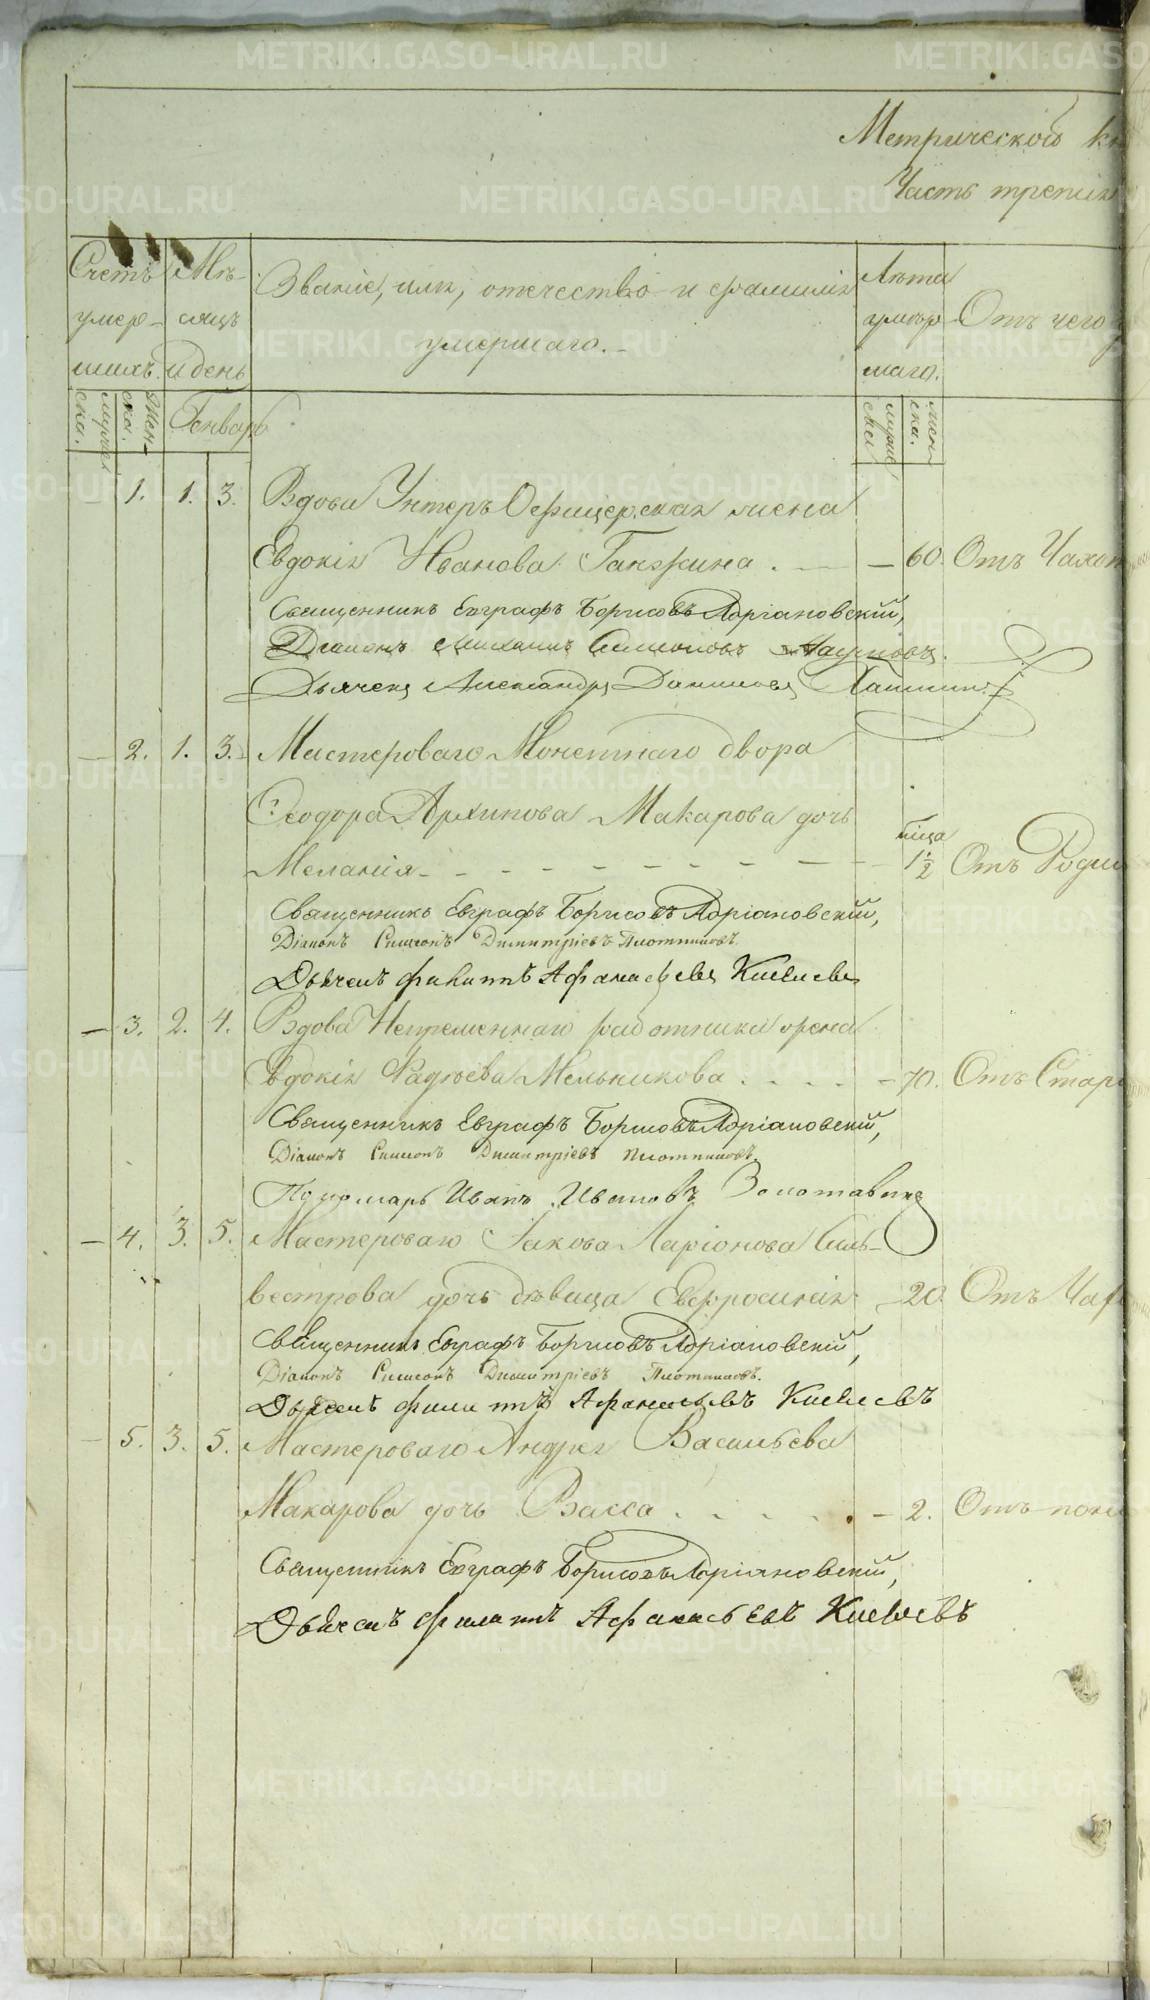 Метрической
Часть третія
Счетъ умер- шихъ.
Мѣ- сяцъ и день
Званіе, имя, отечество и фамилія
умершаго.
Лѣта умер- шаго.
Отъ чего
мужеска.
женска.
Генварь
мужеска
женска.
– 1. 1. 3. Вдова Унтеръ Офицерская жена
Евдокія Иванова . – 60. Отъ Чахот
Священникъ Евграфъ Борисовъ Адріановскій,
Діаконъ Михаилъ Симоновъ
Дьячекъ Александръ Данииловъ
– 2. 1. 3. Мастероваго Монетнаго двора
Ѳеодора Архипова Макарова дочь
Меланія – – – – – – – 1½ Отъ Родим
Священникъ Евграфъ Борисовъ Адріановскій,
Діаконъ Симеонъ Димитріевъ Плотниковъ.
Дьячекъ Филиппъ Афанасьевъ Киселевъ
– 3. 2. 4. Вдова Непременнаго работника жена
Евдокія Фадѣева Мельникова . . . . – 70. Отъ Стар
Священникъ Евграфъ Борисовъ Адріановскій,
Діаконъ Симеонъ Димитріевъ Плотниковъ.
Пономарь Иванъ Ивановъ Золотавинъ
– 4. 3. 5. Мастероваго Іакова Ларіонова Силь-
вестрова дочь дѣвица Евфросинія – 20. Отъ Чах
Священникъ Евграфъ Борисовъ Адріановскій,
Діаконъ Симеонъ Димитріевъ Плотниковъ.
Дьячекъ Филиппъ Афанасьевъ Киселевъ
– 5. 3. 5. Мастероваго Андрея Васильева
Макарова дочь Васса . . . . . – 2. Отъ
Священникъ Евграфъ Борисовъ Адріановскій,
Дьячекъ Филиппъ Афанасьевъ Киселевъ
METRIKI.GASO-URAL.RU